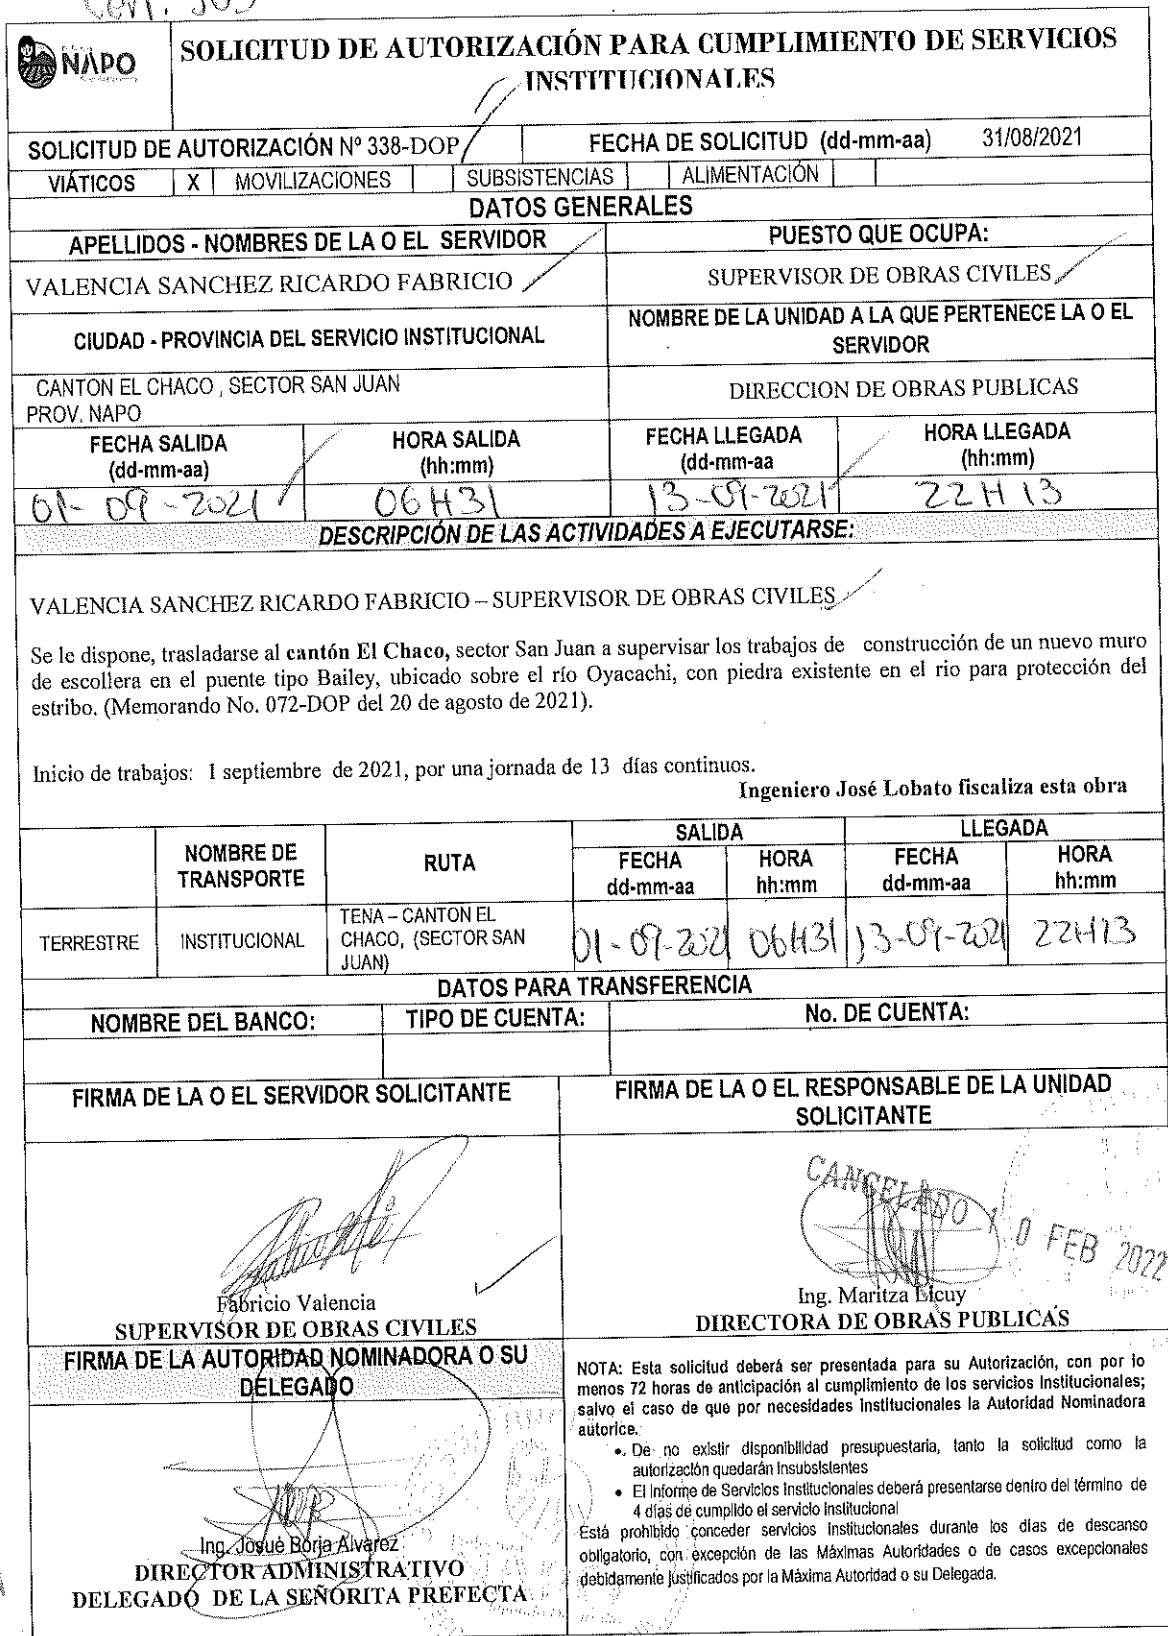 NAPO
SOLICITUD DE AUTORIZACIÓN PARA CUMPLIMIENTO DE SERVICIOS
INSTITUCIONALES
SOLICITUD DE AUTORIZACIÓN Nº 338-DOP FECHA DE SOLICITUD (dd-mm-aa) 31/08/2021
VIÁTICOS X MOVILIZACIONES SUBSISTENCIAS ALIMENTACIÓN
DATOS GENERALES
APELLIDOS - NOMBRES DE LA O EL SERVIDOR PUESTO QUE OCUPA:
VALENCIA SANCHEZ RICARDO FABRICIO SUPERVISOR DE OBRAS CIVILES
CIUDAD - PROVINCIA DEL SERVICIO INSTITUCIONAL NOMBRE DE LA UNIDAD A LA QUE PERTENECE LA O EL
SERVIDOR
CANTON EL CHACO , SECTOR SAN JUAN
PROV. NAPO
DIRECCION DE OBRAS PUBLICAS
FECHA SALIDA HORA SALIDA FECHA LLEGADA HORA LLEGADA
(dd-mm-aa) (hh:mm) (dd-mm-aa (hh:mm)
01-09-2021 06H31 13-09-2021 22H13
DESCRIPCIÓN DE LAS ACTIVIDADES A EJECUTARSE:
VALENCIA SANCHEZ RICARDO FABRICIO – SUPERVISOR DE OBRAS CIVILES
Se le dispone, trasladarse al cantón El Chaco, sector San Juan a supervisar los trabajos de construcción de un nuevo muro
de escollera en el puente tipo Bailey, ubicado sobre el río Oyacachi, con piedra existente en el rio para protección del
estribo. (Memorando No. 072-DOP del 20 de agosto de 2021).
Inicio de trabajos: 1 septiembre de 2021, por una jornada de 13 días continuos.
Ingeniero José Lobato fiscaliza esta obra
SALIDA LLEGADA
NOMBRE DE
TRANSPORTE
RUTA
FECHA HORA FECHA HORA
dd-mm-aa hh:mm dd-mm-aa hh:mm
TERRESTRE INSTITUCIONAL
TENA – CANTON EL
CHACO, (SECTOR SAN
JUAN)
01-09-2021 06H31 13-09-2021 22H13
DATOS PARA TRANSFERENCIA
NOMBRE DEL BANCO: TIPO DE CUENTA: No. DE CUENTA:
FIRMA DE LA O EL SERVIDOR SOLICITANTE
FIRMA DE LA O EL RESPONSABLE DE LA UNIDAD
SOLICITANTE
CANCELADO 10 FEB 2022
Fabricio Valencia
SUPERVISOR DE OBRAS CIVILES
Ing. Maritza Licuy
DIRECTORA DE OBRAS PUBLICAS
FIRMA DE LA AUTORIDAD NOMINADORA O SU
DELEGADO
Ing. Josué Borja Alvarez
DIRECTOR ADMINISTRATIVO
DELEGADO DE LA SEÑORITA PREFECTA
NOTA: Esta solicitud deberá ser presentada para su Autorización, con por lo
menos 72 horas de anticipación al cumplimiento de los servicios Institucionales;
salvo el caso de que por necesidades Institucionales la Autoridad Nominadora
autorice.
• De no existir disponibilidad presupuestaria, tanto la solicitud como la
autorización quedarán insubsistentes
• El Informe de Servicios Institucionales deberá presentarse dentro del término de
4 días de cumplido el servicio Institucional
Está prohibido conceder servicios Institucionales durante los días de descanso
obligatorio, con excepción de las Máximas Autoridades o de casos excepcionales
debidamente justificados por la Máxima Autoridad o su Delegada.